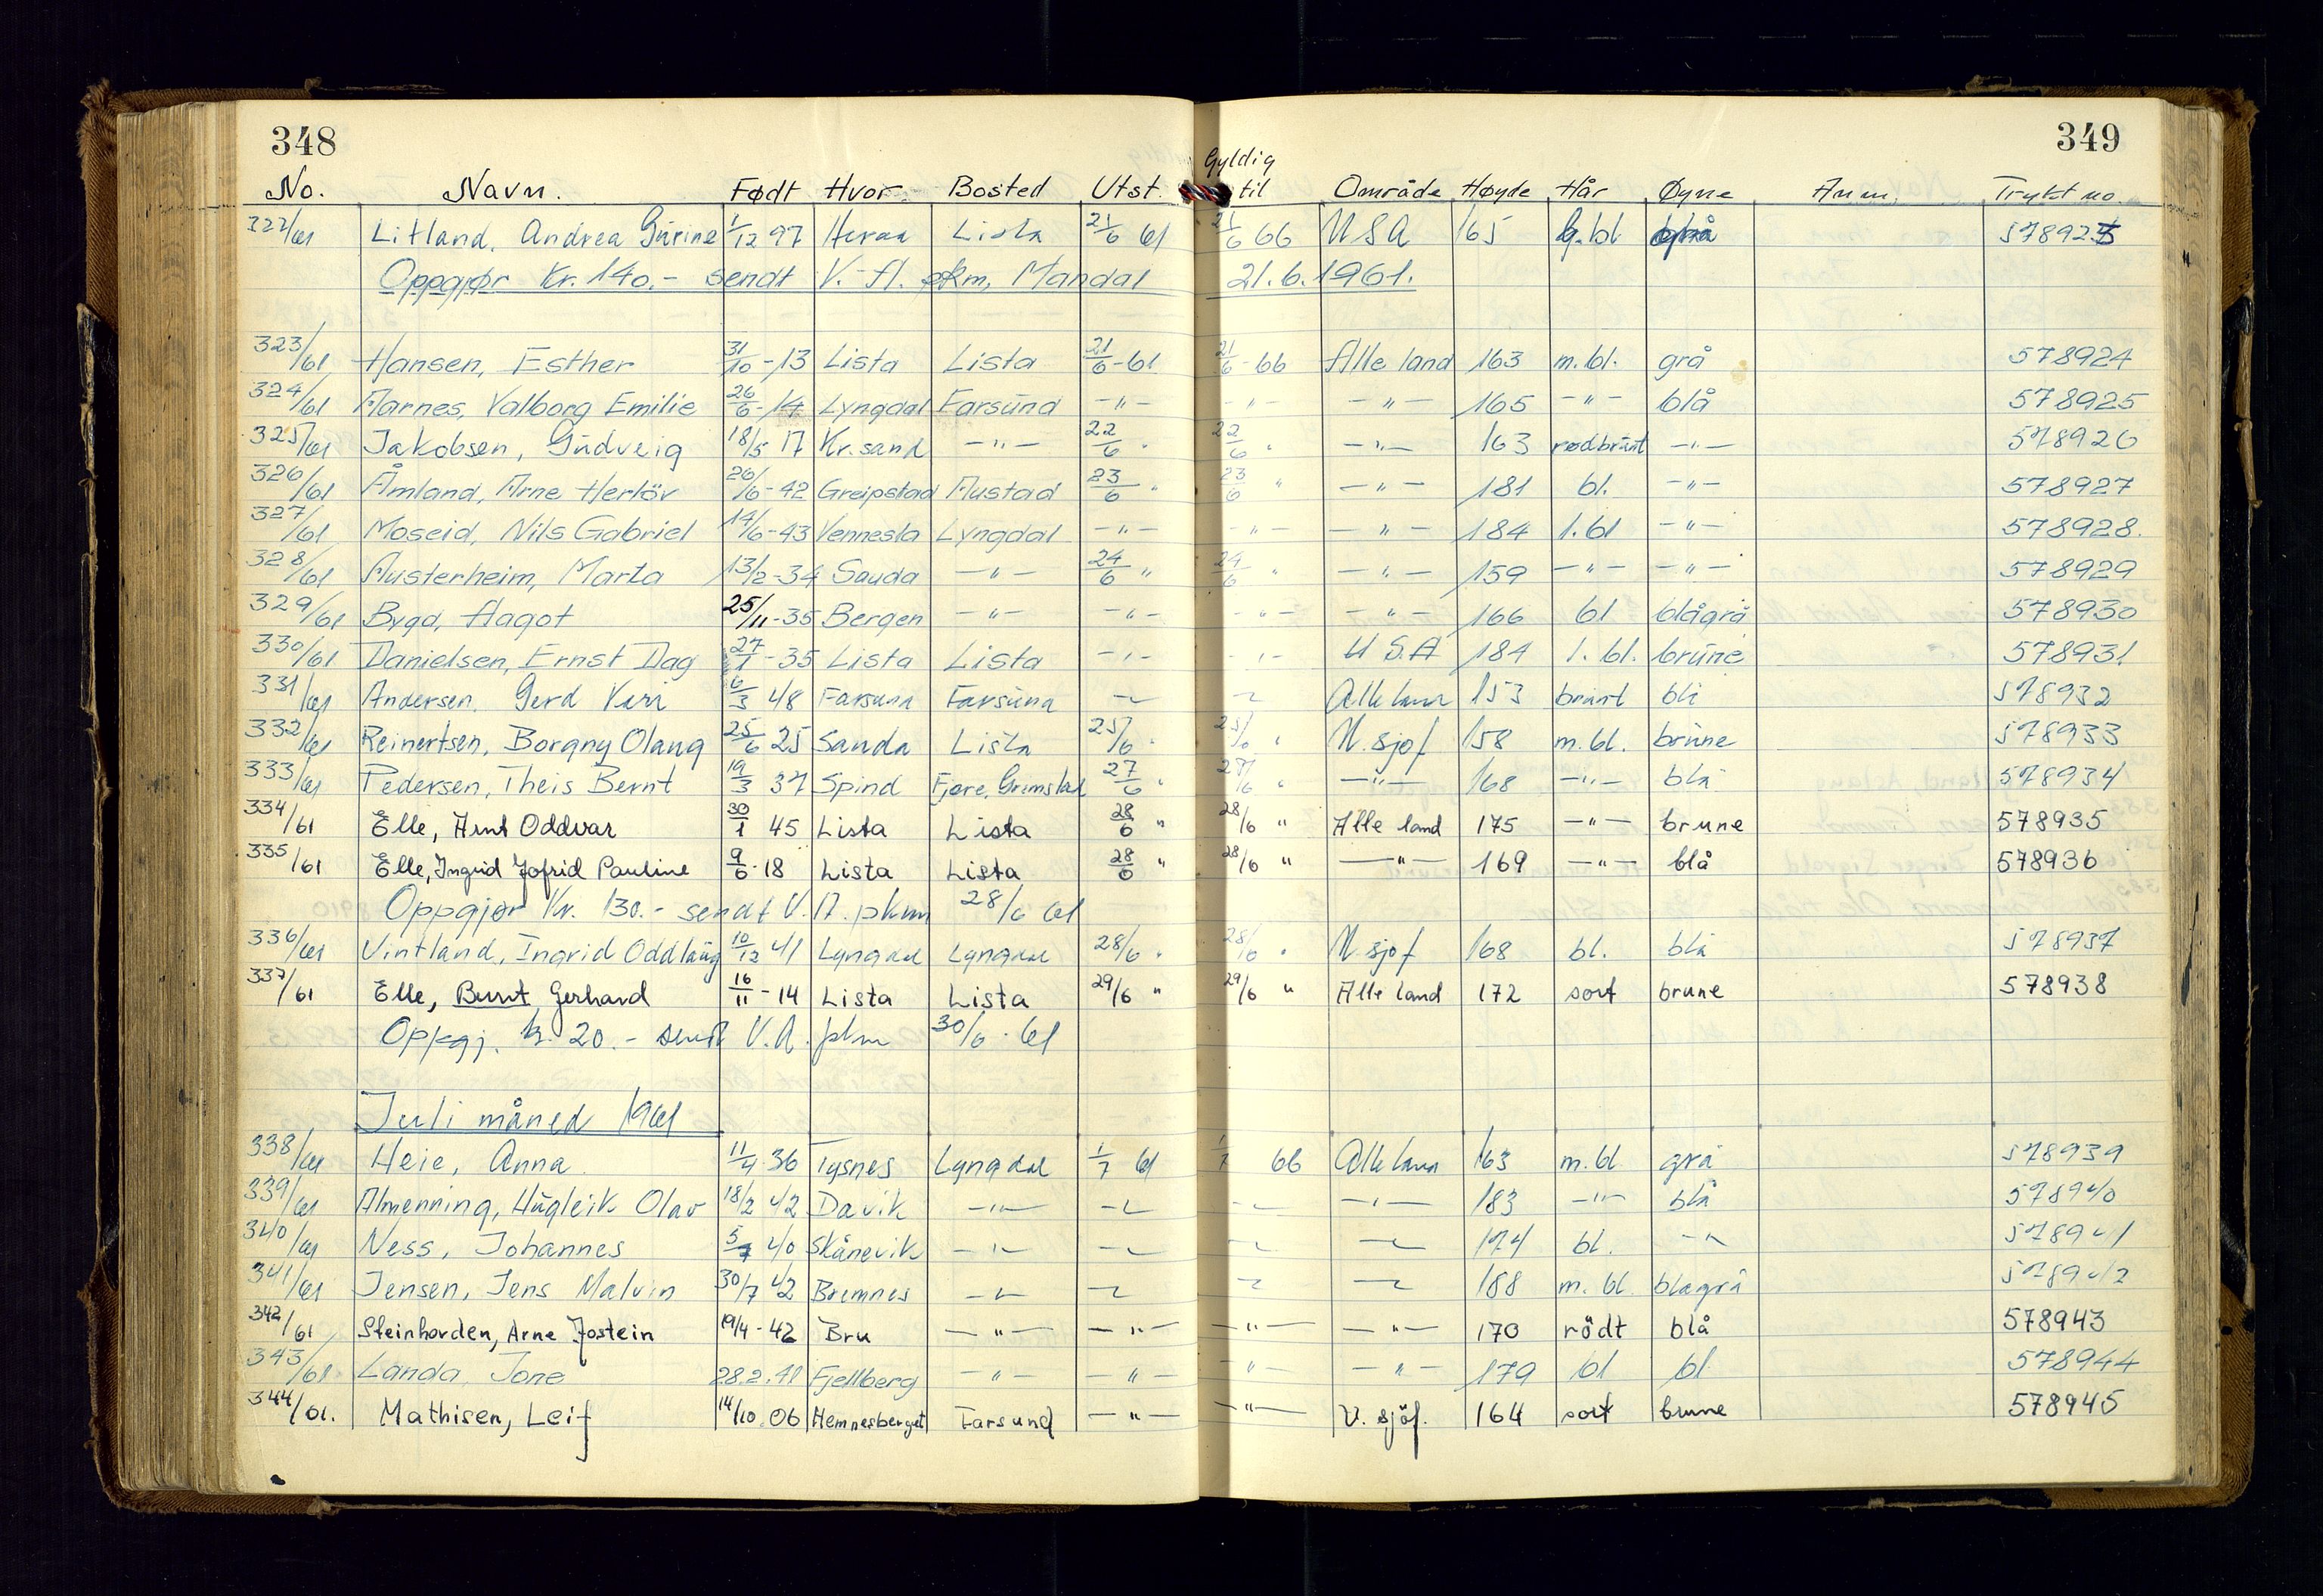 348
349
No. Navn. Født Hvor Bosted Utst. Gyldig til Område Høyde Hår Øyne Anm. Trykt no.
322/61 Litland, Andrea Gurine 1/12 97 Heraa Lista 21/6 61 21/6 66 USA 165 g.bl 578923
Oppgjør Kr. 140.- sendt V.-A. pkm, Mandal 21.6.1961.
323/61 Hansen, Esther 31/10-13 Lista Lista 21/6-61 21/6-66 Alle land 163 m.bl. grå 578924
324/61 Aarnes, Valborg Emilie 26/6-14 Lyngdal Farsund -"- -"- -"- 165 -"- blå 578925
325/61 Jakobsen, Gudveig 18/5 17 Kr.sand -"- 22/6 " 22/6 " -"- 163 rødbrunt -"- 578926
326/61 Åmland, Arne Herlöv 26/6-42 Greipstad Austad 23/6 " 23/6 " -"- 181 bl. -"- 578927
327/61 Moseid, Nils Gabriel 14/6-43 Vennesla Lyngdal -"- -"- -"- 184 l.bl -"- 578928.
328/61 Austerheim, Marta 13/2-34 Sauda -"- 24/6 " 24/6 " -"- 159 -"- -"- 578929
329/61 Bygd, Hagot 25/11-35 Bergen -"- -"- -"- -"- 166 bl blågrå 578930
330/61 Danielsen, Ernst Dag 27/1-35 Lista Lista -"- -"- U.S.A 184 l.bl. brune 578931
331/61 Andersen, Gerd Kari 6/3 48 Farsund Farsund -"- -"- Alle land 153 brunt blå 578932
332/61 Reinertsen, Borgny Olaug 25/6 25 Sauda Lista 25/6 " 25/6 " U.sjøf 158 m.bl. brune 578933
333/61 Pedersen, Theis Bernt 19/3 37 Spind Fjære, Grimstad 27/6 " 27/6 " -"- 168 -"- blå 578934
334/61 Elle, Arnt Oddvar 30/1 45 Lista Lista 28/6 " 28/6 " Alle land 175 -"- brune 578935
335/61 Elle, Ingrid Jofrid Pauline 9/6-18 Lista Lista 28/6 " 28/6 " -"- 169 -"- blå 578936
Oppgjør Kr. 130.- sendt V.A. pkm 28/6 61
336/61 Vintland, Ingrid Oddlaug 10/12 41 Lyngdal Lyngdal 28/6 " 28/6 " U.sjøf 168 bl. blå 578937
337/61 Elle, Bernt Gerhard 16/11-14 Lista Lista 29/6 " 29/6 " Alle land 172 sort brune 578938
Oppgj. kr. 20.- sendt V.A. pkm 30/6-61
Juli måned 1961
338/61 Heie, Anna 11/4 36 Tysnes Lyngdal 1/7 61 1/7 66 Alle land 163 m.bl grå 578939
339/61 Almenning, Hugleik Olav 18/2 42 Davik -"- -"- -"- -"- 183 -"- blå 578940
340/61 Ness, Johannes 5/7 40 Skånevik -"- -"- -"- -"- 174 bl. -"- 578941
341/61 Jensen, Jens Malvin 30/7 42 Bremnes -"- -"- -"- -"- 188 m.bl. blågrå 578942
342/61 Steinhovden, Arne Jostein 19/4-42 Bru -"- -"- -"- -"- 170 rödt blå 578943
343/61 Landa, Tone 28.2.41 Fjellberg -"- -"- -"- -"- 179 bl bl 578944
344/61. Mathisen, Leif 14/10.06 Hemnesberget Farsund -"- -"- U. sjöf. 164 sort brune 578945